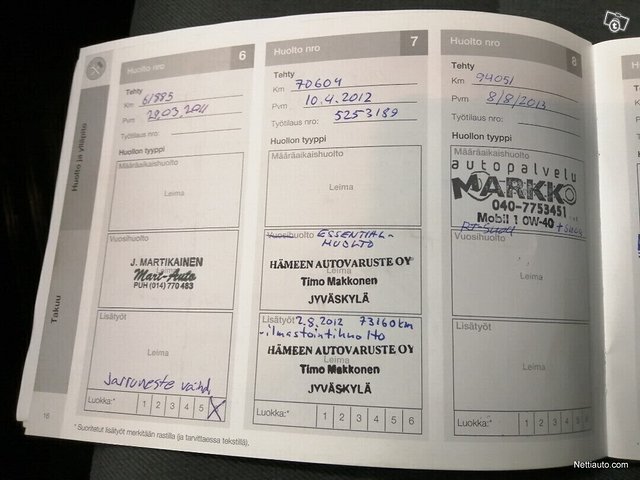 Huolto ja ylläpito
Takuu
Huolto nro 6
Tehty
Km 61885
Pvm 29.03.2011
Työtilaus nro:
Huollon tyyppi
Määräaikaishuolto
Leima
Vuosihuolto
J. MARTIKAINEN
Leima
Mart-Auto
PUH (014) 770 483
Lisätyöt
Leima
Jarruneste vaihd.
Luokka:* 1 2 3 4 5 X
Huolto nro 7
Tehty
Km 70604
Pvm 10.4.2012
Työtilaus nro: 5253189
Huollon tyyppi
Määräaikaishuolto
Leima
Vuosihuolto ESSENTIAL-
HUOLTO
HÄMEEN AUTOVARUSTE OY
Leima
Timo Makkonen
JYVÄSKYLÄ
Lisätyöt 2.8.2012 73160km
-ilmastointihuolto
HÄMEEN AUTOVARUSTE OY
Leima
Timo Makkonen
JYVÄSKYLÄ
Luokka:* 1 2 3 4 5 6
Huolto nro 8
Tehty
Km 94051
Pvm 8/8/2013
Työtilaus nro:
Huollon tyyppi
Määräaikaishuolto
autopalvelu
MARKKO
040-7753451
Mobil 1 0W-40
Vuosihuolto
Leima
Lisätyöt
Leima
Luokka:* 1 2 3 4 5 6
16
* Suoritetut lisätyöt merkitään rastilla (ja tarvittaessa tekstillä).
Nettiauto.com